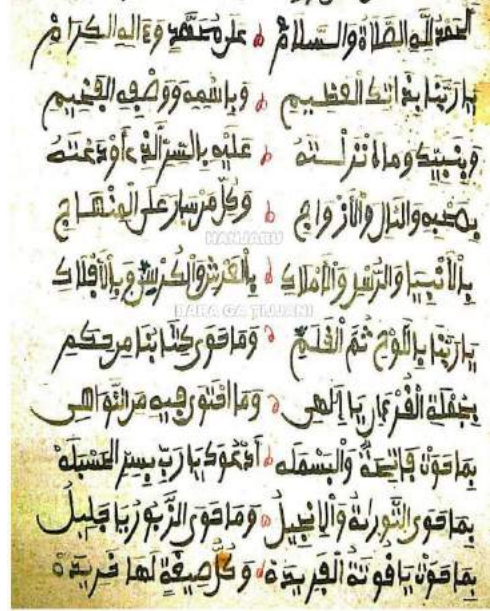 الحمد لله الصلاة والسلام على محمد وءاله الكرام
يا ربنا بذاتك العظيم وباسمه ووصفه الفخيم
وبنبيك وما أنزلته عليه بالسر الذي أودعته
بصحبه والئال والأزواج وكل من سار على المنهاج
بالأنبيا والرسل والأملاك بالعرش والكرسي وبالأفلاك
HANJARU
BABA GA TIJJANI
يا ربنا باللوح ثم القلم وما حوى كتابنا من حكم
بجملة القرءان يا إلهي وما احتوى فيه من النواهي
بما حوت فاتحة والبسمله أدعوك يا رب بسر الحسبله
بما حوى التوراة والإنجيل وما حوى الزبور يا جليل
بما حوت ياقوتة الفريدة وكل صيغة لها فريدة